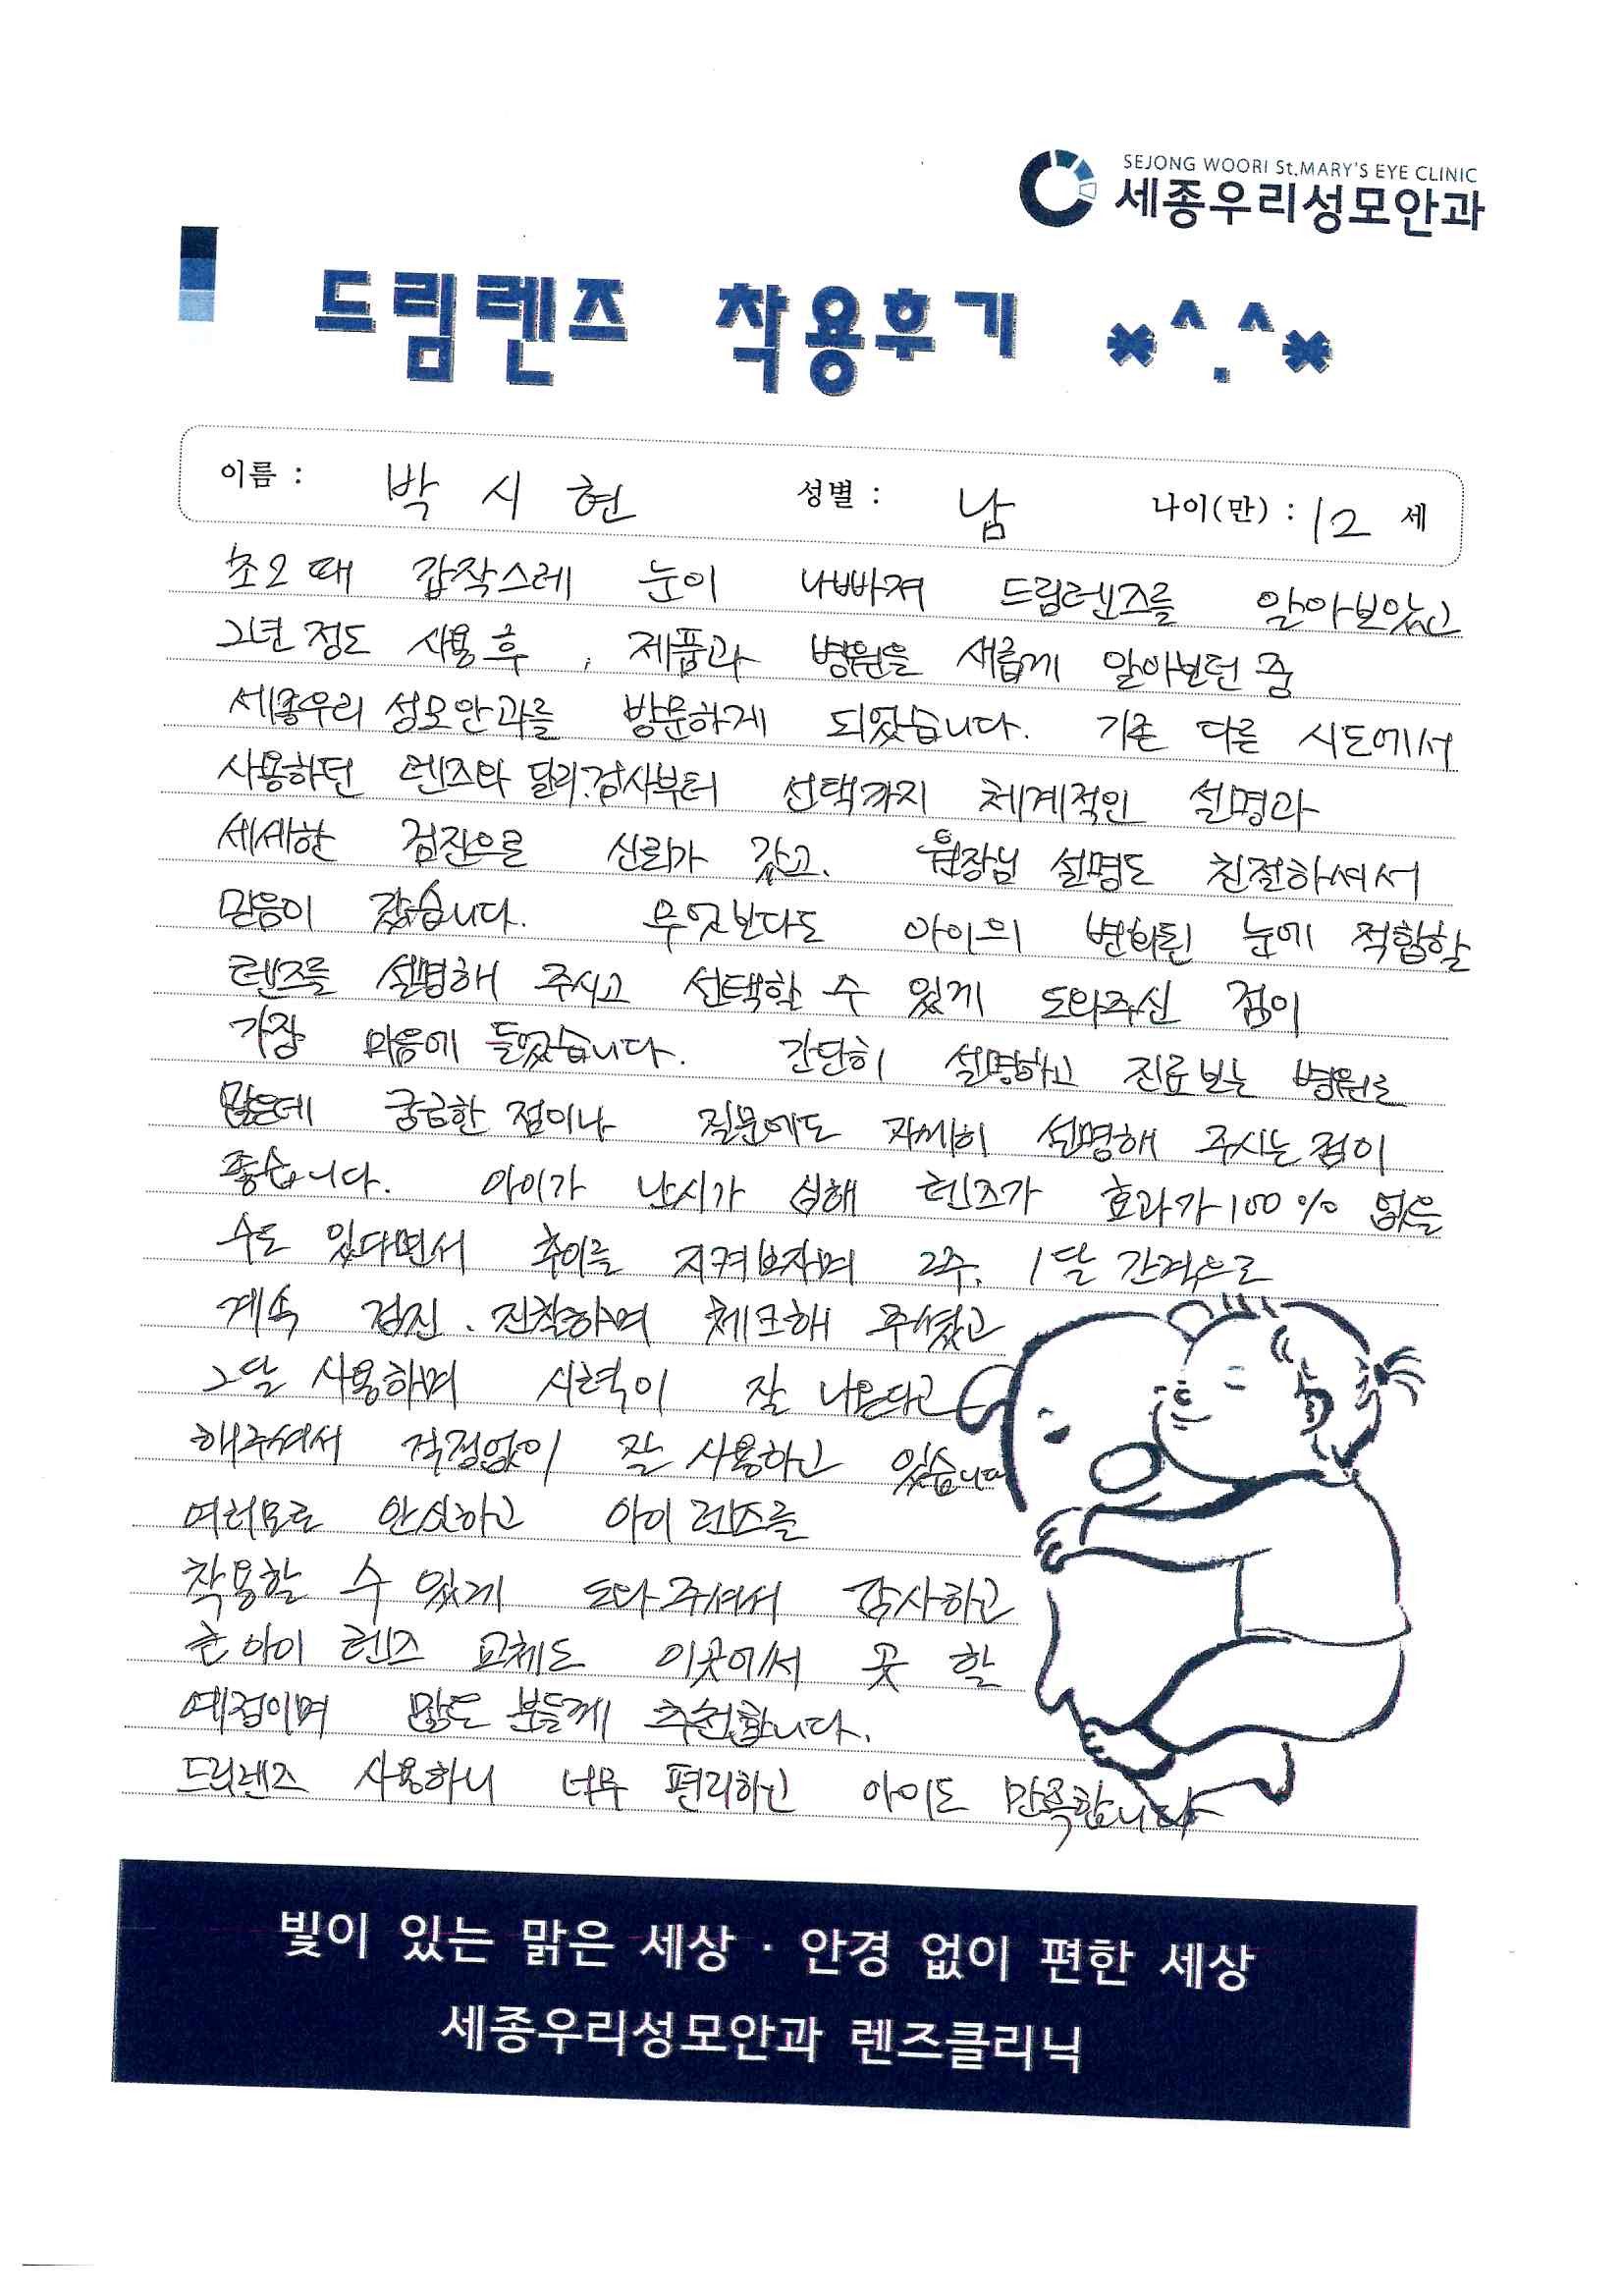 SEJONG WOORI St.MARY'S EYE CLINIC
세종우리성모안과
드림렌즈 착용후기 *^.^*
이름 : 박 시 현 성별 : 남 나이(만) : 12 세
초2 때 갑작스레 눈이 나빠져 드림렌즈를 알아보았고
2년 정도 사용 후, 제품과 병원을 새롭게 알아보던 중
세종우리 성모안과를 방문하게 되었습니다. 기존 다른 시도에서
사용하던 렌즈와 달리 검사부터 선택까지 체계적인 설명과
세세한 검진으로 신뢰가 갔고, 원장님 설명도 친절하셔서
믿음이 갔습니다. 무엇보다도 아이의 변화된 눈에 적합할
렌즈를 설명해 주시고 선택할 수 있게 도와주신 점이
가장 마음에 들었습니다. 간단히 설명하고 진료보는 병원도
많은데 궁금한 점이나 질문에도 자세히 설명해 주시는 점이
좋습니다. 아이가 난시가 심해 렌즈가 효과가 100% 없을
수도 있다면서 추이를 지켜보자며 2주, 1달 간격으로
계속 검진, 진찰하며 체크해 주셨고
2달 사용하며 시력이 잘 나온다고
해주셔서 걱정없이 잘 사용하고 있습니다
여러모로 안심하고 아이 렌즈를
착용할 수 있게 도와주셔서 감사하고
큰아이 렌즈 교체도 이곳에서 곳 할
예정이며 많은 분들께 추천합니다.
드림렌즈 사용하니 너무 편리하고 아이도 만족합니다
빛이 있는 맑은 세상 · 안경 없이 편한 세상
세종우리성모안과 렌즈클리닉